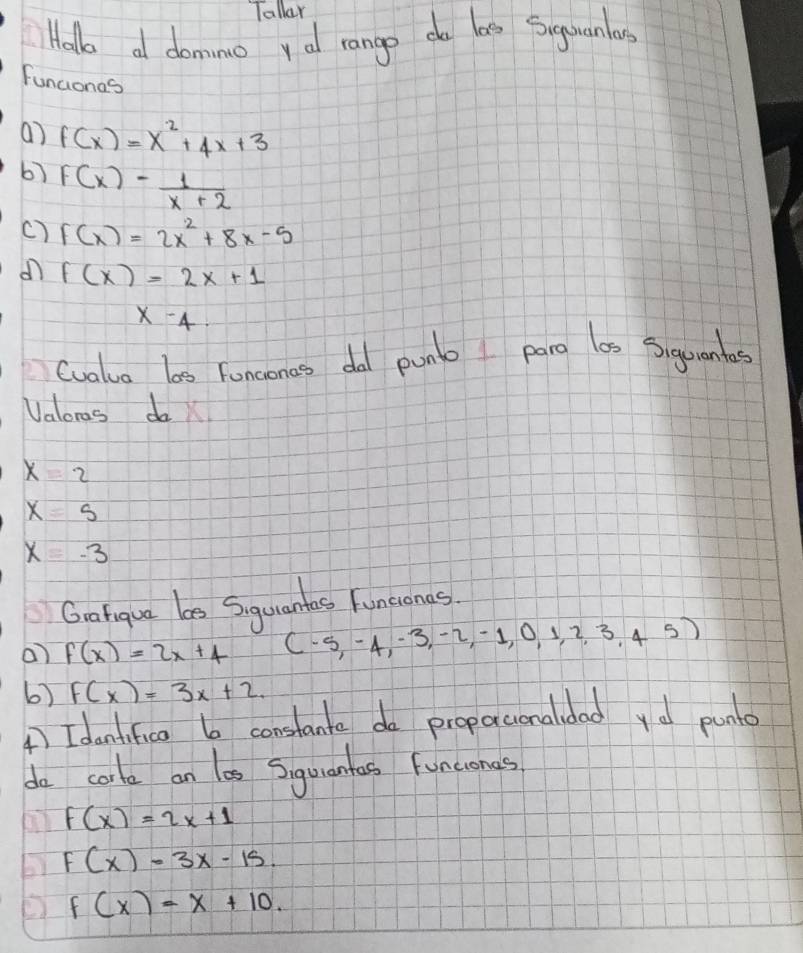 Taller
1) Halla el dominio y el rango de las siguientes
Funciones
a) f(x) = x² + 4x + 3
b) f(x) = 1 / x + 2
c) f(x) = 2x² + 8x - 5
d) f(x) = 2x + 1
x - 4.
2) Evalua las funciones del punto 1 para los siguientes
Valores de x.
x = 2
x = 5
x = -3
3) Grafique las Siguientes Funciones.
a) f(x) = 2x + 4 (-5, -4, -3, -2, -1, 0, 1, 2, 3, 4 5)
b) f(x) = 3x + 2.
4) Identifica la constante de proporcionalidad y el punto
de corte en las Siguientes Funciones.
a) f(x) = 2x + 1
b) f(x) = 3x - 15.
c) f(x) = x + 10.